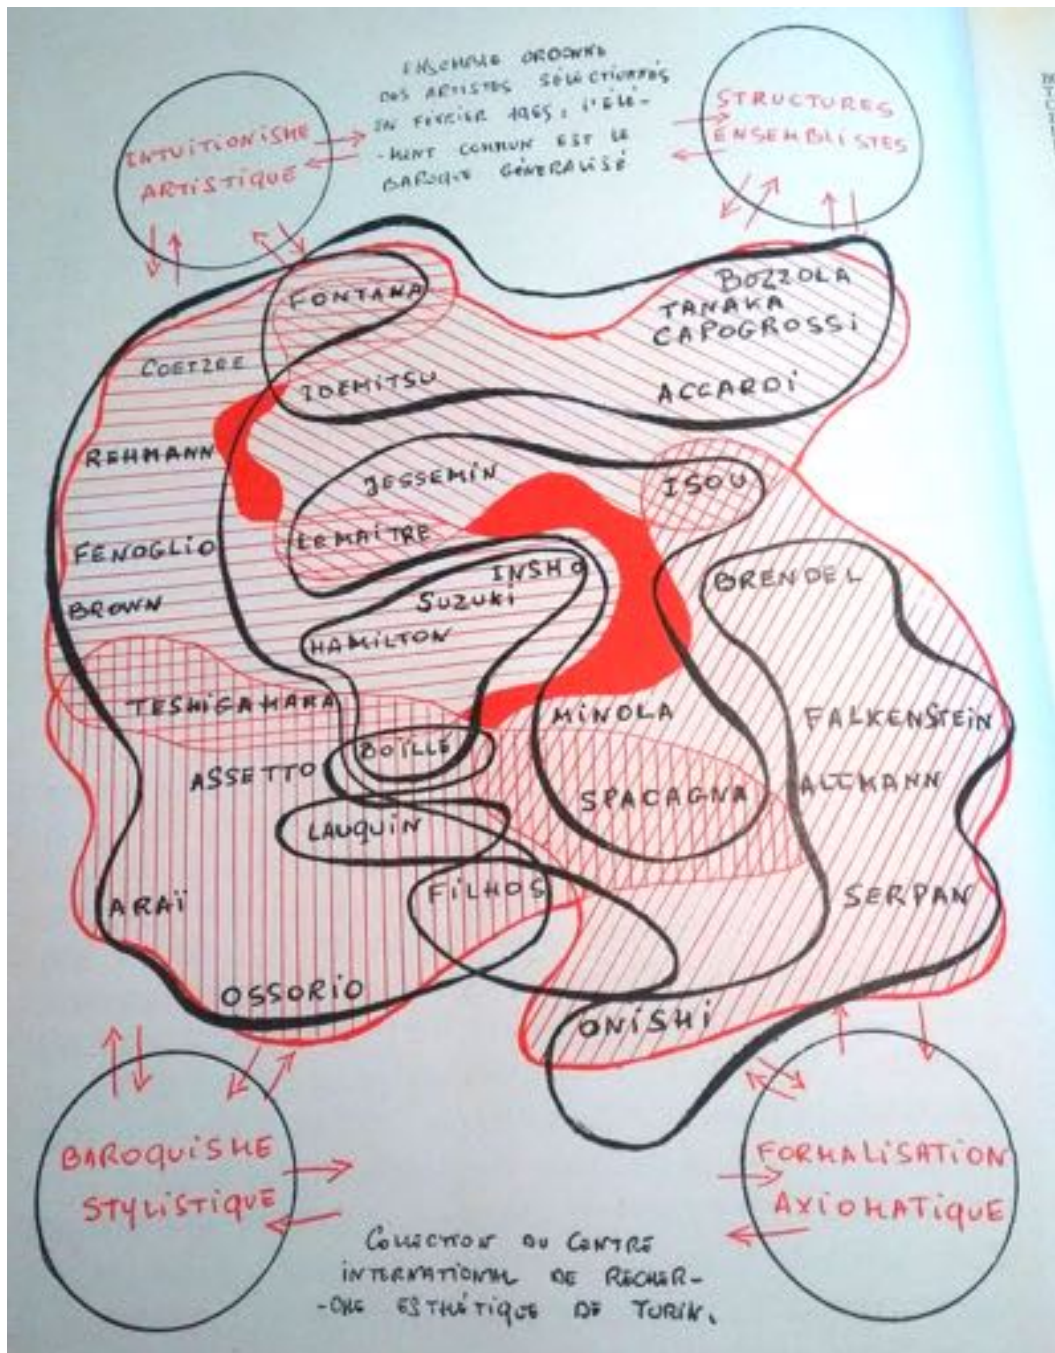 ENSEMBLE ORDONNÉ
DES ARTISTES SÉLECTIONNÉS
EN FÉVRIER 1965, L'ÉLÉ-
-MENT COMMUN EST LE
BAROQUE GÉNÉRALISÉ
INTUITIONISME
ARTISTIQUE
STRUCTURES
ENSEMBLISTES
FONTANA
BOZZOLA
TANAKA
CAPOGROSSI
COETZEE
IDEMITSU
ACCARDI
REHMANN
JESSEMIN
ISOU
FENOGLIO
LEMAÎTRE
INSHO
BRENDEL
BROWN
SUZUKI
HAMILTON
TESHIGAHARA
MINOLA
FALKENSTEIN
BOÏLLE
ASSETTO
SPACAGNA
ALTMANN
LAUQUIN
FILHOS
SERPAN
ARAÏ
OSSORIO
ONISHI
BAROQUISME
STYLISTIQUE
FORMALISATION
AXIOMATIQUE
COLLECTION DU CENTRE
INTERNATIONAL DE RECHER-
-CHE ESTHÉTIQUE DE TURIN.